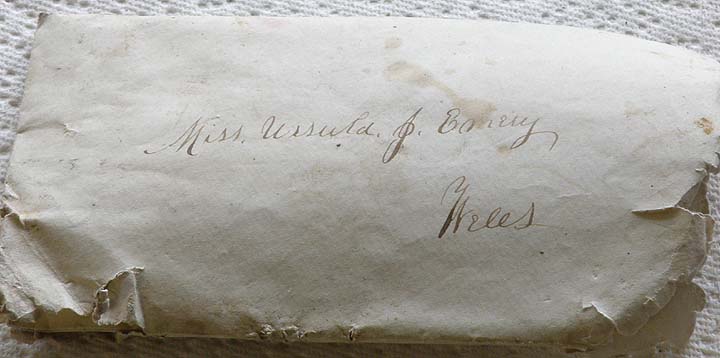 Miss. Ursula. J. Emery
Wells